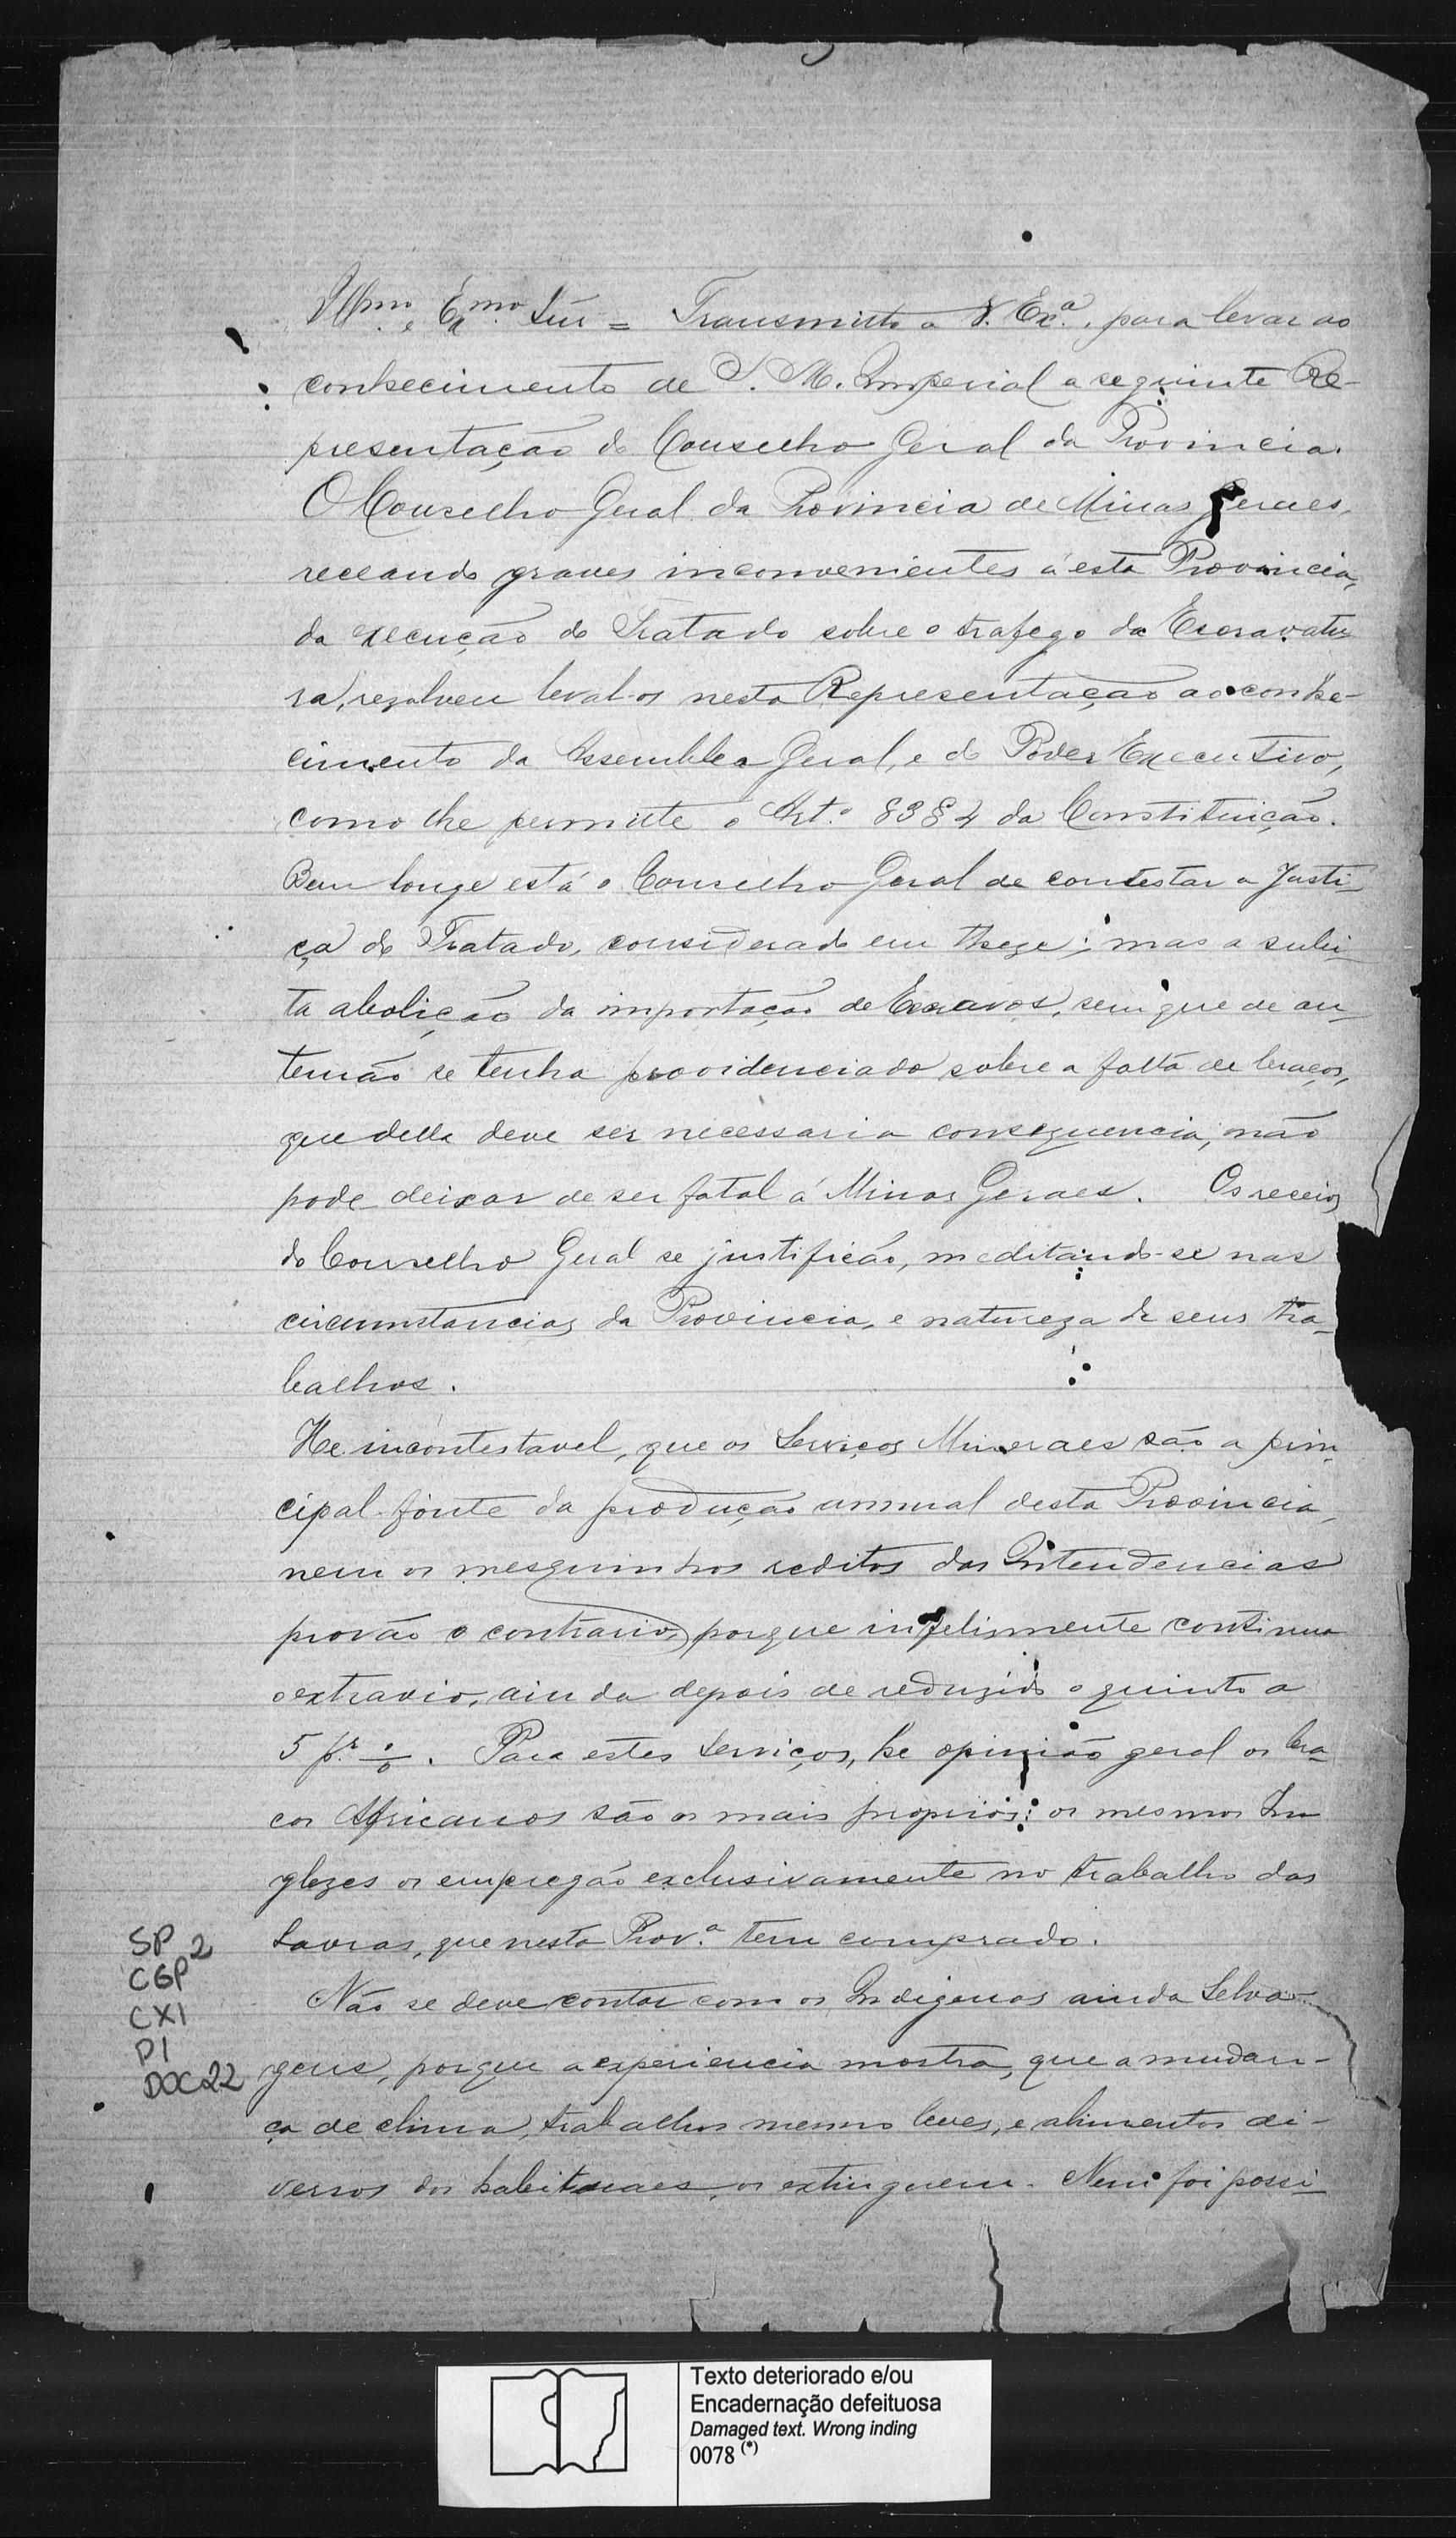 Illmo. e Exmo. Snr = Transmitto a V. Exª., para levar ao
conhecimento de S. M. Imperial a seguinte Re-
presentação do Conselho Geral da Provincia.
O Conselho Geral da Provincia de Minas Geraes,
receando graves inconvenientes á esta Provincia,
da execução do Tratado sobre o trafego da Escravatu
ra, resolveu leval-os nesta Representação ao conhe-
cimento da Assemblea Geral, e do Poder Executivo,
como lhe permitte o Art.º 83 § 4 da Constituição.
Bem longe está o Conselho Geral de contestar a Justi-
ça do Tratado, considerado em these; mas a subi-
ta abolição da importação de Escravos, sem que de an-
temão se tenha providenciado sobre a falta de braços,
que della deve ser necessaria consequencia, não
pode deixar de ser fatal á Minas Geraes. Os receios
do Conselho Geral se justificão, meditando-se nas
circumstancias da Provincia, e natureza de seus tra-
balhos.
He incontestavel, que os Serviços Mineraes são a prin-
cipal fonte da producção annual desta Provincia,
nem os mesquinhos reditos das Intendencias
provão o contrario, porque infelismente continua
o extravio, ainda depois de reduzido o quinto a
5 p.r %. Para estes serviços, he opinião geral os bra-
cos Africanos são os mais proprios: os mesmos In
glezes os empregão exclusivamente no trabalho das
Lavras, que nesta Prov.ª tem comprado.
Não se deve contar com os Indigenas ainda Selva-
gens, porque a experiencia mostra, que a mudan-
ça de clima, trabalhos mesmo leves, e alimentos di-
versos dos habituaes, os extinguem. Nem foi possi-
SP
CGP 2
CX1
P1
DOC22
Texto deteriorado e/ou
Encadernação defeituosa
Damaged text. Wrong inding
0078 (*)